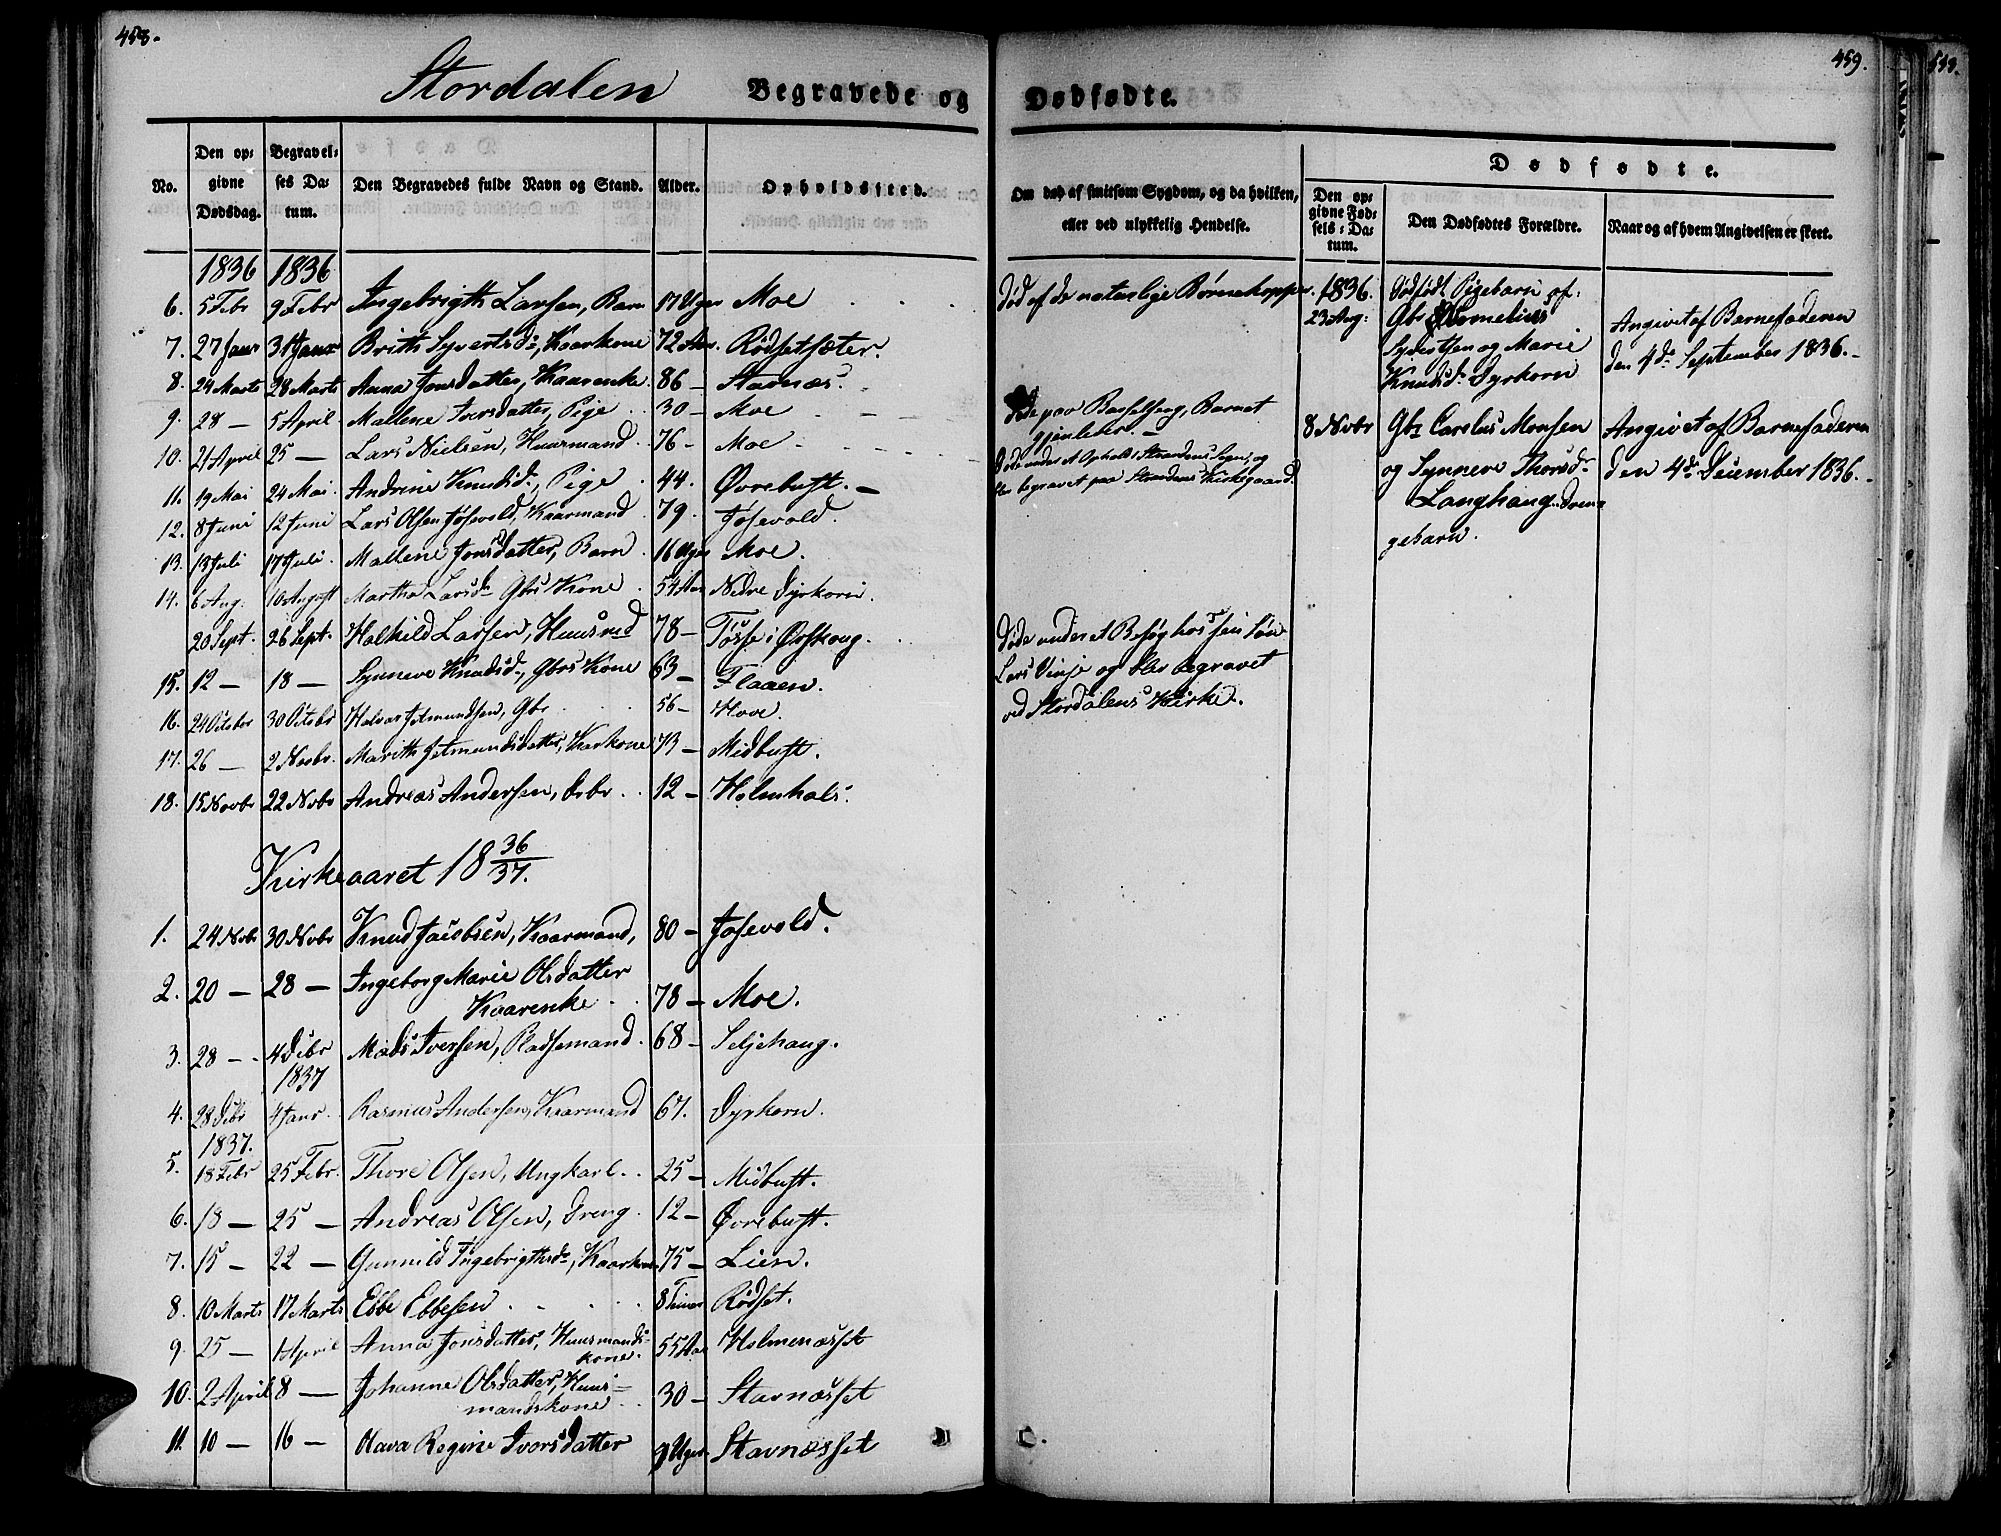 458.
Stordalen Begravede og
No. Den opgivne Dødsdag. Begravelses Datum. Den Begravedes fulde Navn og Stand. Alder. Opholdssted.
1836 1836
6. 5 Febr 9 Febr Ingebrigth Larsen, Barn 17 Uger Moe
7. 27 Janr 31 Janr Brith Syvertsd:, Kaarkone 72 Aar. Rødsetsæter.
8. 24 Marts 28 Marts Anna Jonsdatter, Kaarenke. 86 — Stavnæs.
9. 28 — 5 April Mallene Iversdatter, Pige 30 — Moe
10. 21 April 25 — Lars Nielsen, Huusmand 76 — Moe
11. 19 Mai 24 Mai Andrine Knudsd:, Pige 44. Øvrebust. —
12. 8 Juni 12 Juni Lars Olsen Jøsevold, Kaarmand 79. Jøsevold.
13. 13 Juli 17 Juli Mallene Jonsdatter, Barn 16 Uger Moe.
14. 6 Aug. 10 August Martha Larsd: Gbrs Kone 54 Aar Nedre Dyrkorn.
20 Sept. 26 Sept. Halkild Larsen, Huusmd 78 — Tøsse i Ørskoug.
15. 12 — 18 — Synneve Knudsd:, Gbrs Kone 63 — Flaaen.
16. 24 Octobr 30 Octobr Halvor Jetmundsen, Gbr. 56 — Hove.
17. 26 — 2 Novbr. Marith Jetmundsdatter, Kaarkone 73 — Midbust.
18. 15 Novbr 22 Novbr Andreas Andersen, 12 — Holmhals.
Kirkeaaret 18 36/37.
1. 24 Novbr 30 Novbr Knud Jacobsen, Kaarmand, 80 — Jøsevold.
2. 20 — 28 — Ingeborg Marie Olsdatter
Kaarenke 78 — Moe.
3. 28 — 4 Decbr Mads Iversen, Pladsemand. 68 — Seljehaug.
1837
4. 28 Decbr 4 Janr. Rasmus Andersen, Kaarmand 67. Dyrkorn.
1837.
5. 18 Febr 25 Febr. Thore Olsen, Ungkarl. 25 — Midbust.
6. 18 — 25 — Andreas Olsen, Dreng. 12 — Øvrebust.
7. 15 — 22 — Gunnild Ingebrigthsd:, Kaarkone 75 — Lien.
8. 10 Marts 17 Marts Ebbe Ebbesen 8 Timer Rødset.
9. 25 — 1 April Anna Jonsdatter, Huusmands-
kone. 55 Aar Holmenæsset
10. 2 April 8 — Johanne Olsdatter, Huus-
mandskone 30 — Stavnæsset
11. 10 — 16 — Olava Regine Iversdatter 9 Uger. Stavnæsset
459.
Dødfødte.
Om død af smitsom Sygdom, og da hvilken, eller ved ulykkelig Hendelse.
Dødfødte.
Den opgivne Fødsels-Datum. Den Dødfødtes Forældre. Naar og af hvem Angivelsen er skeet.
Død af de naturlige Børnekopper.
Døde paa Barselseng, Barnet
gjenlever. —
Døde under et Ophold i Strandens Sogn, og
blev begravet paa Strandens Kirkegaard.
Døde under et Besøg hos sin Søn
Lars Vinje og blev begravet
ved Stordalens Kirke.
1836. Dødfødt Pigebarn af:
23 Aug: Gbr Kornelius
Syvertsen og Marie
Knudsd: Dyrkorn
Angivet af Barnefaderen
den 4de September 1836. —
8 Novbr Gbr Carelus Monsen
og Synneve Thorsd:
Langhaug. Dren-
gebarn.
Angivet af Barnefaderen
den 4de December 1836.